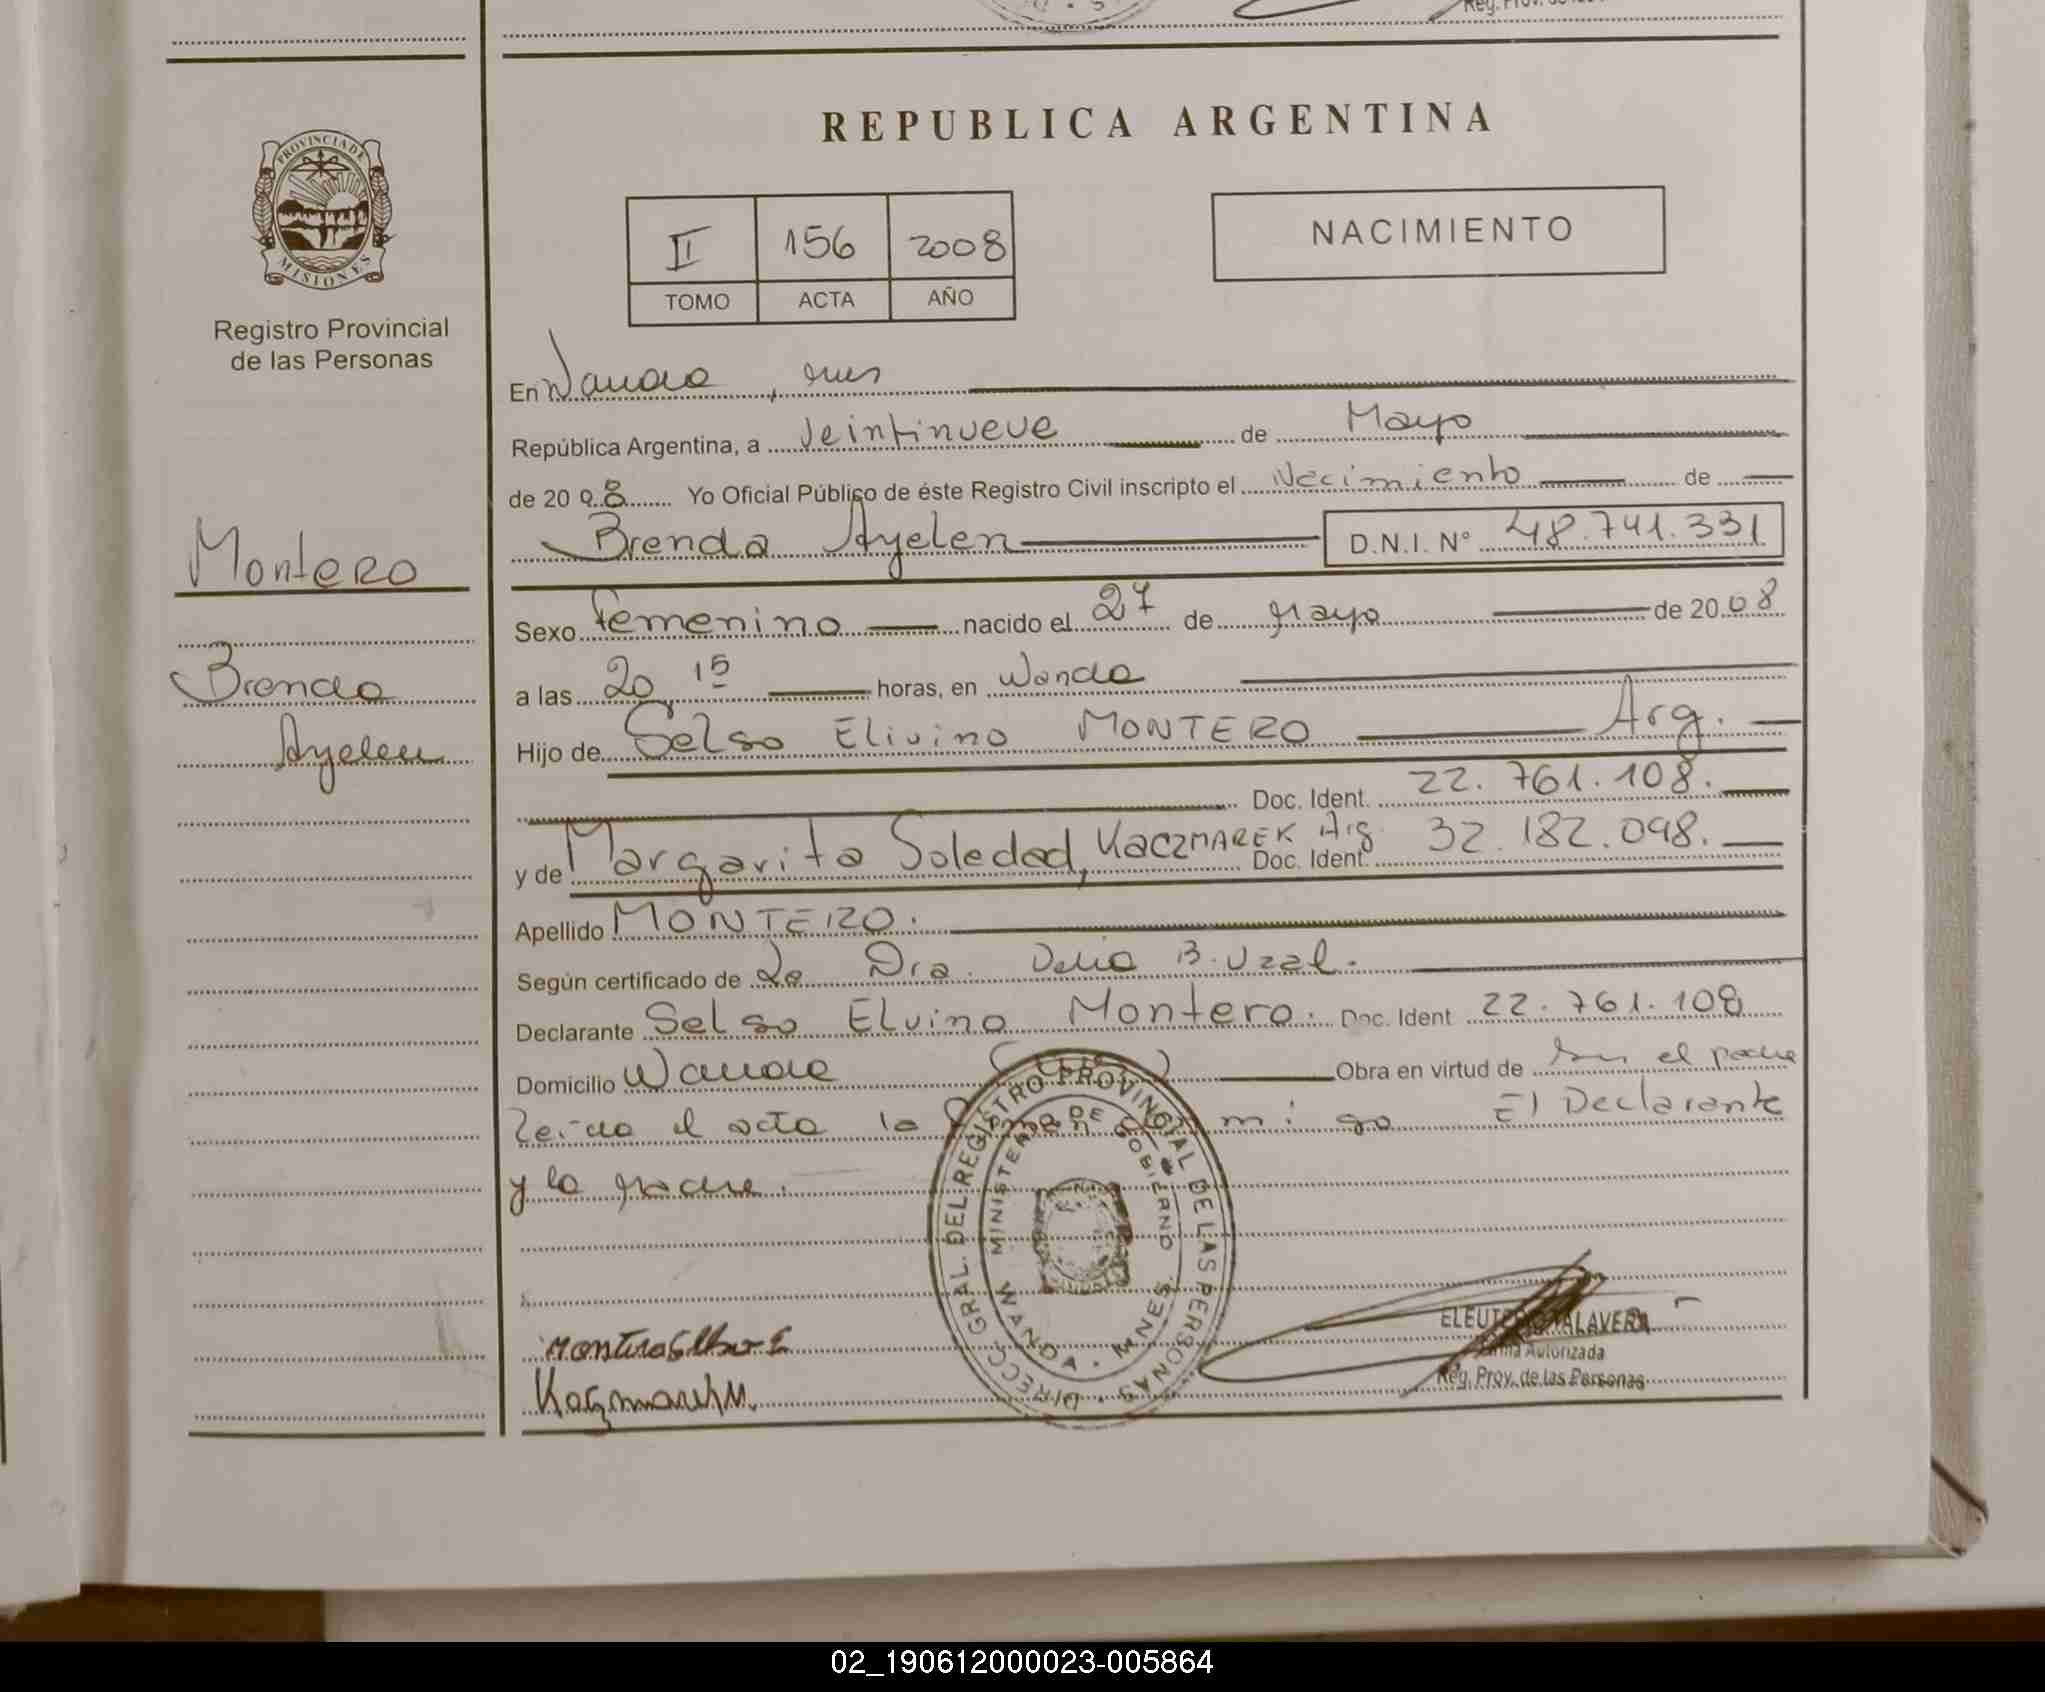 Reg. Prov. de las
REPUBLICA ARGENTINA
PROVINCIA DE
MISIONES
Registro Provincial
de las Personas
II 156 2008
TOMO ACTA AÑO
NACIMIENTO
En Wanda, Mnes
República Argentina, a Veintinueve de Mayo
de 2008 Yo Oficial Público de éste Registro Civil inscripto el Nacimiento de
Brenda Ayelen D.N.I. N° 48.741.331
Montero
Brenda
Ayelen
Sexo Femenino nacido el 27 de Mayo de 2008
a las 20 15 horas, en Wanda
Hijo de Selso Elivino MONTERO Arg.
Doc. Ident. 22.761.108.
y de Margarita Soledad, KACZMAREK Arg. Doc. Ident. 32.182.098.
Apellido MONTERO.
Según certificado de la Dra. Delia B. Uzal.
Declarante Selso Elvino Montero. Doc. Ident 22.761.108
Domicilio Wanda Obra en virtud de ser el padre
Leida el acta la firman conmigo El Declarante
y la madre.
DIRECC. GRAL. DEL REGISTRO PROVINCIAL DE LAS PERSONAS
MINISTERIO DE GOBIERNO
WANDA - MNES.
Kaczmarek M.
ELEUTERIO TALAVERA
Firma Autorizada
Reg. Prov. de las Personas
02_190612000023-005864